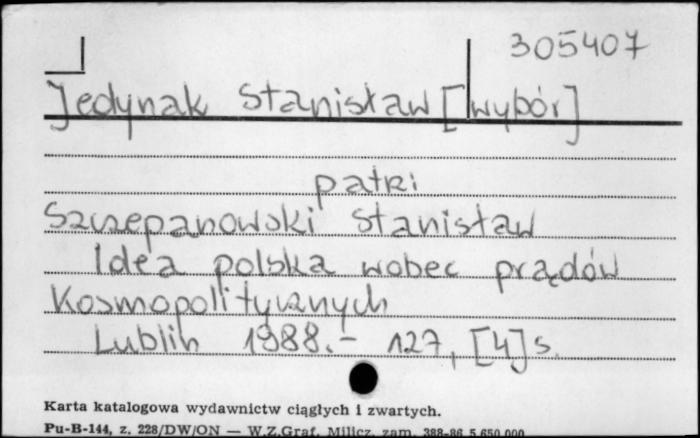 305407
Jedynak Stanisław [wybór]
patrz:
Szczepanowski Stanisław
Idea polska wobec prądów
kosmopolitycznych
Lublin 1988.- 127, [4] s.
Karta katalogowa wydawnictw ciągłych i zwartych.
Pu-B-144, z. 228/DW/ON — W.Z.Graf. Milicz, zam. 388-86 5.650.000